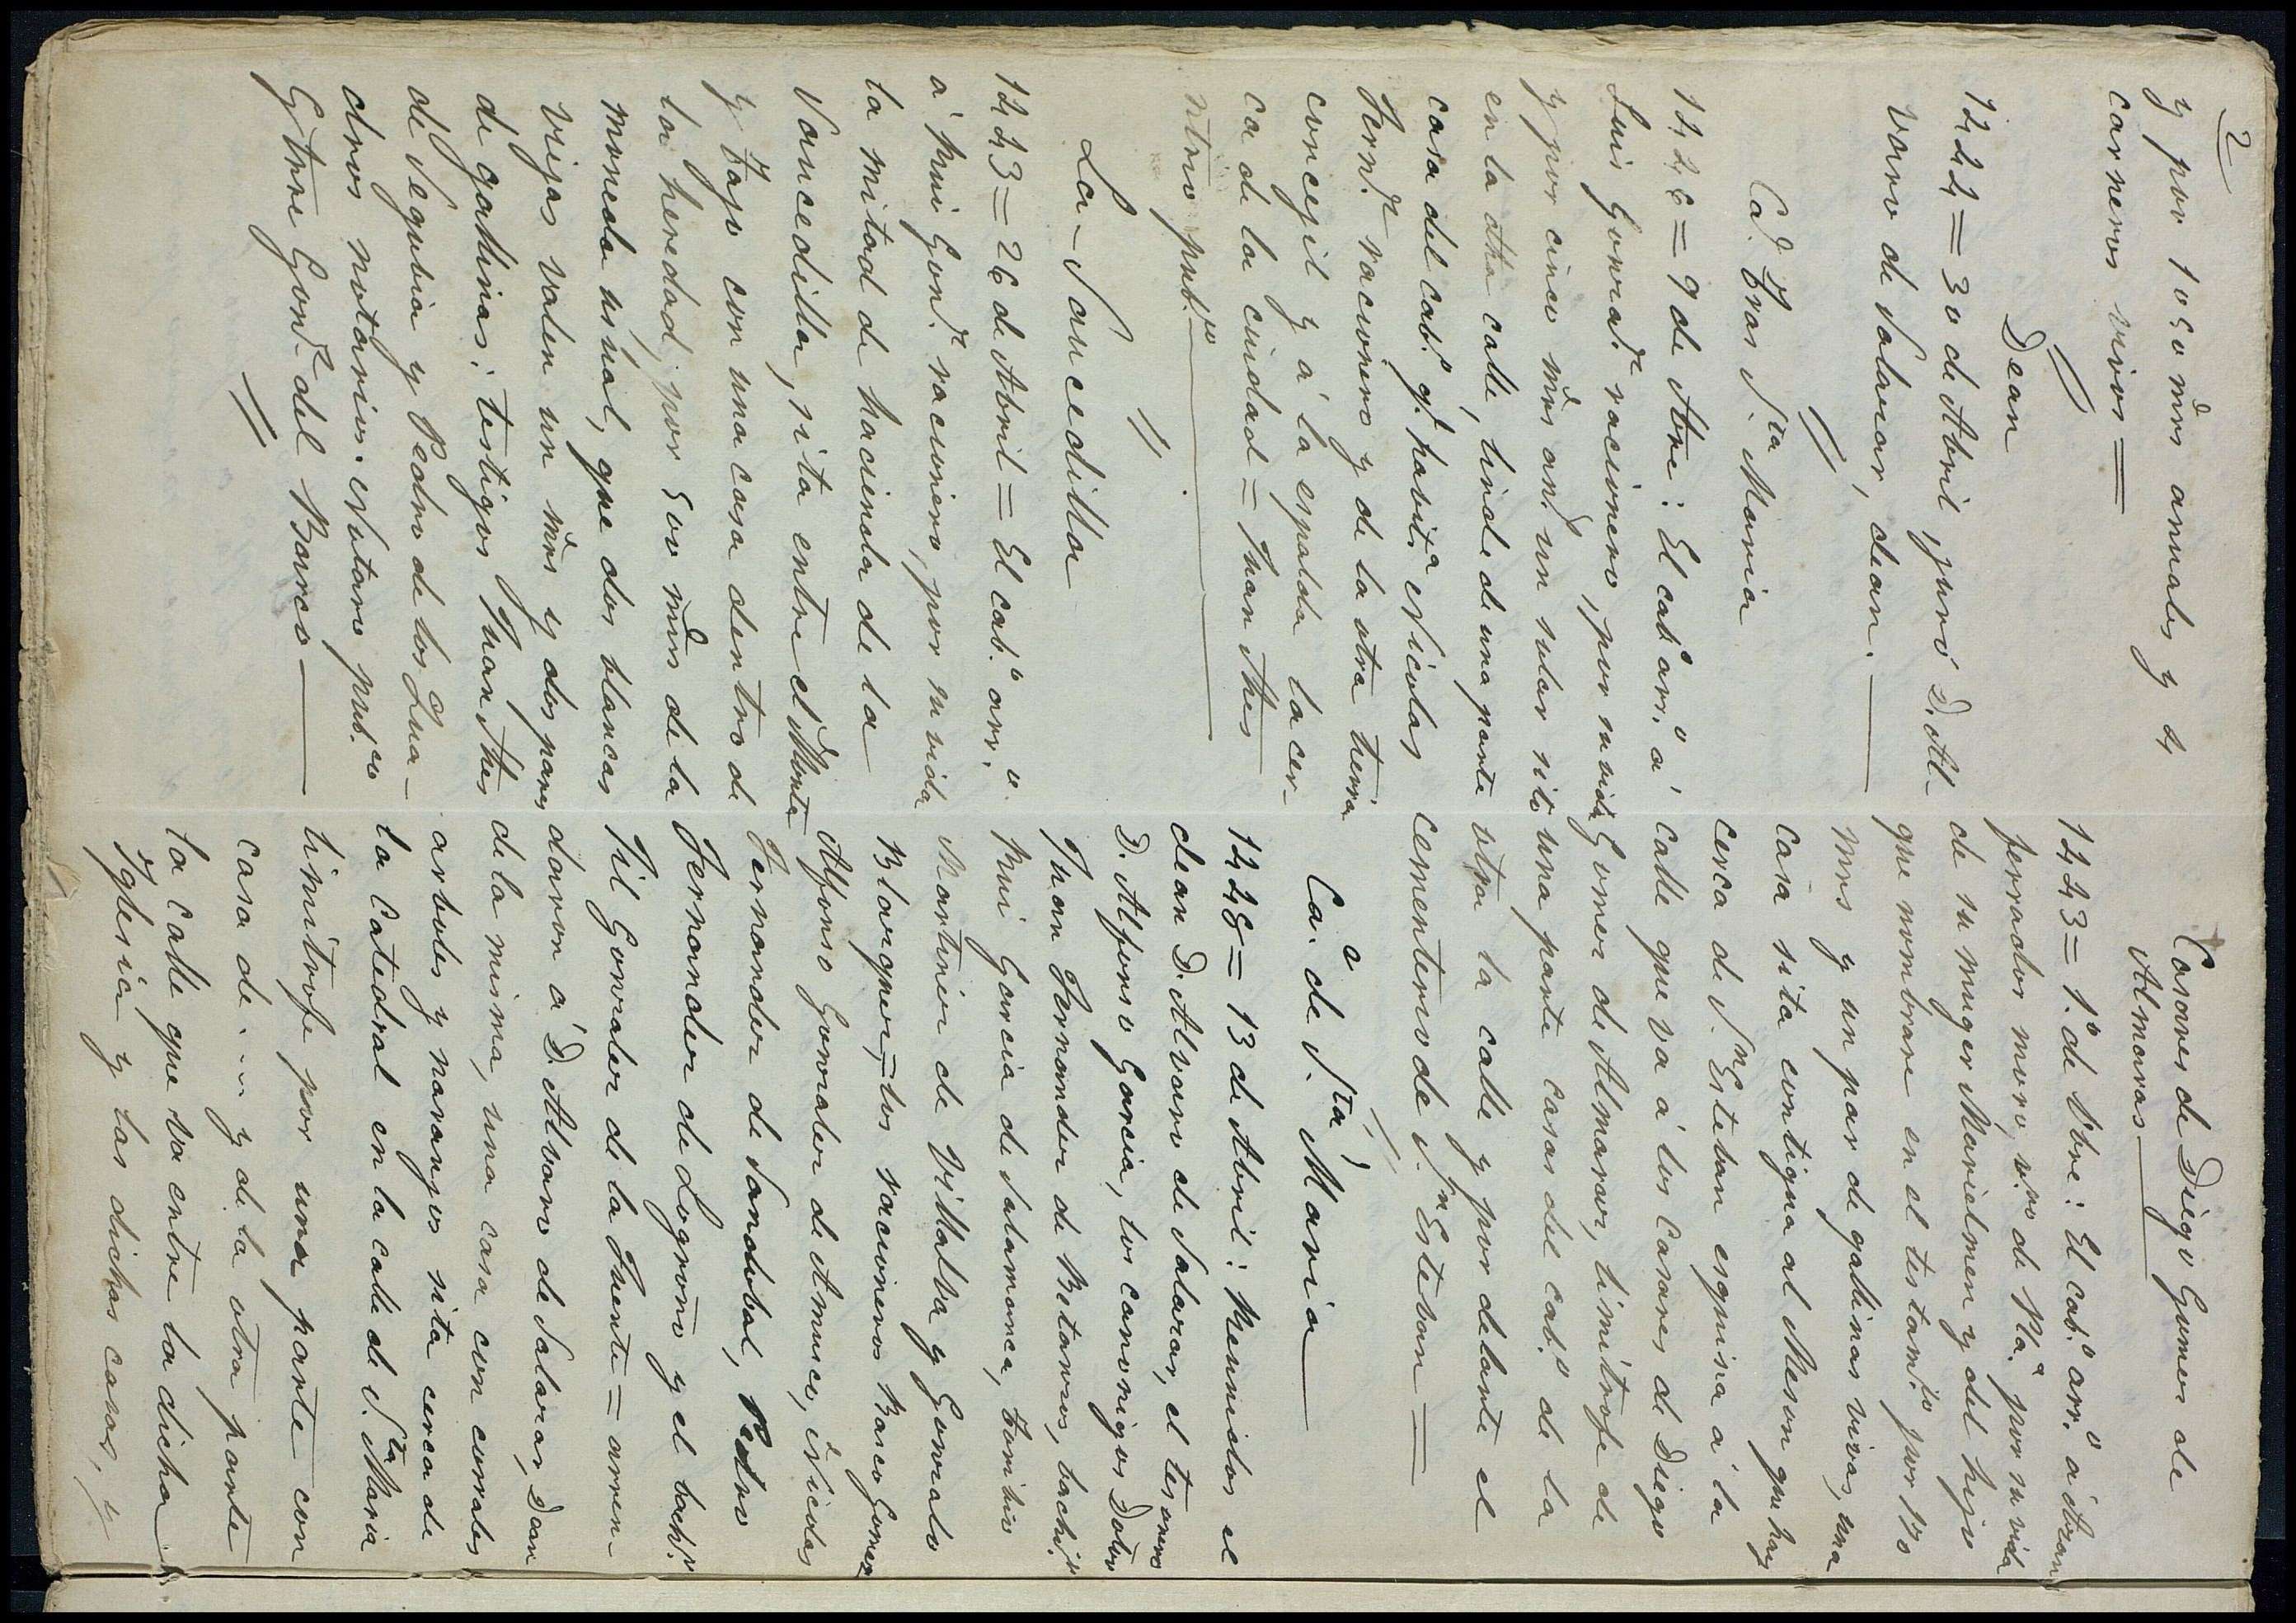 2
y por 1050 mrs anuales y 4
carneros vivos =
Dean
1444 = 30 de Abril, juró D. Al-
varo de Salazar, dean.
Ca.d tras S.ta Maria
1446 = 9 de Abre: El cab.o arr.o á
Luis Gonzal.z racionero, por su vida
y por cinco mrs an.s un solar sito
en la dha calle, linde de una parte
casa del cab.o q.e habit.a Nicolas
Fern.z racionero y de la otra tierra
concejil y á la espalda la cer-
ca de la ciudad = Juan Ahes
ntrio pub.co
La-Saucedilla
1443 = 26 de Abril = El cab.o arr.o
á Rui Gonz.z racionero, por su vida
la mitad de hacienda de la
Saucedilla, sita entre el Monte
y Tajo con una casa dentro de
la heredad, por 500 mrs de la
moneda usual, que dos blancas
viejas valen un mrs y dos pares
de gallinas: testigos Juan Ahes
de Segobia y Pedro de los Qua-
dros notarios. Notario pub.co
Gtrre Gonz.z del Barco
Casares de Diego Gomez de
Almaraz
1443 = 1.o de Sbre: El cab.o arr.o á
ferrador moro, v.no de Pla.a por su vida
de su muger Marielmen y del hijo
que nombrare en el testam.to por 170
mrs y un par de gallinas vivas, una
casa sita contigua al Meson que hay
cerca de S.n Esteban esquina á la
calle que va á los Casares de Diego
Gomez de Almaraz, limítrofe de
una parte casas del cab.o de la
otra la calle y por delante el
cementerio de S.n Estevan =
Ca.a de S.ta Maria
1448 = 13 de Abril: Reunidos el
dean D. Alvaro de Salazar, el tesorero
D. Alfonso Garcia, los canonigos Dotor
Juan Fernandez de Betanzos, bachi.r
Rui Garcia de Salamanca, Toribio
Martinez de Villalba y Gonzalo
Blazquez, = los racioneros Blasco Gomez
Alfonso Gonzalez de Amusco, Nicolas
Fernandez de Sandobal, Pedro
Fernandez de Logroño y el bach.r
Gil Gonzalez de la Fuente = arren-
daron á D. Alvaro de Salazar, Dean
de la misma, una casa con corrales
arboles y naranjos sita cerca de
la Catedral en la calle de S.ta Maria
limítrofe por una parte con
casa de .... y de la otra parte
la calle que va entre la dicha
Yglesia y las dichas casas, y